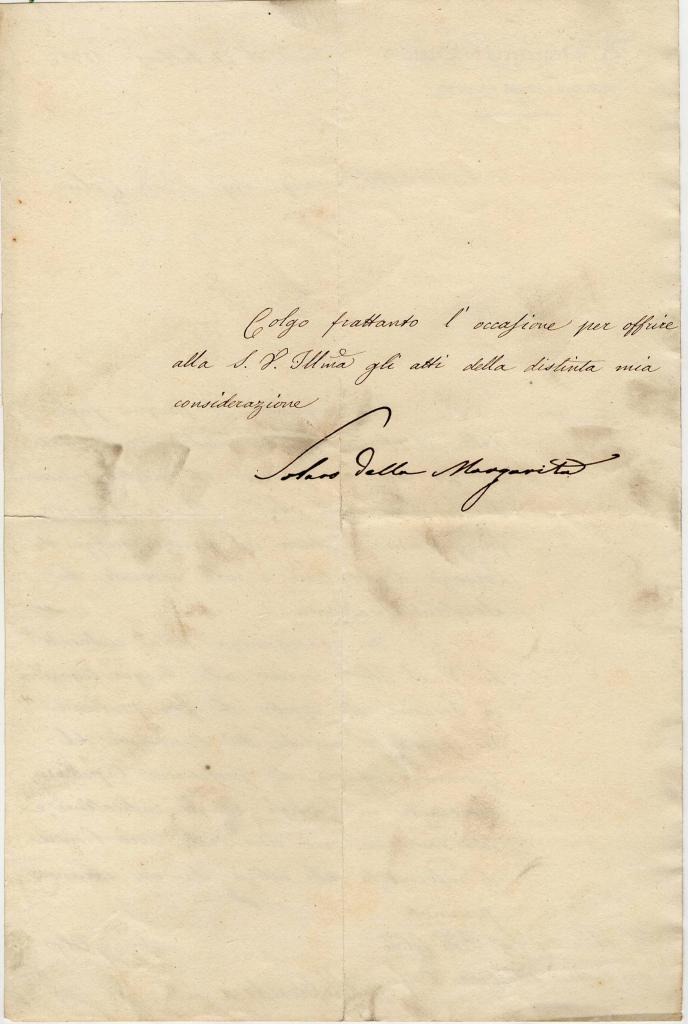 Colgo frattanto l'occasione per offrire
alla S. V. Illma gli atti della distinta mia
considerazione
Solaro Della Margarita